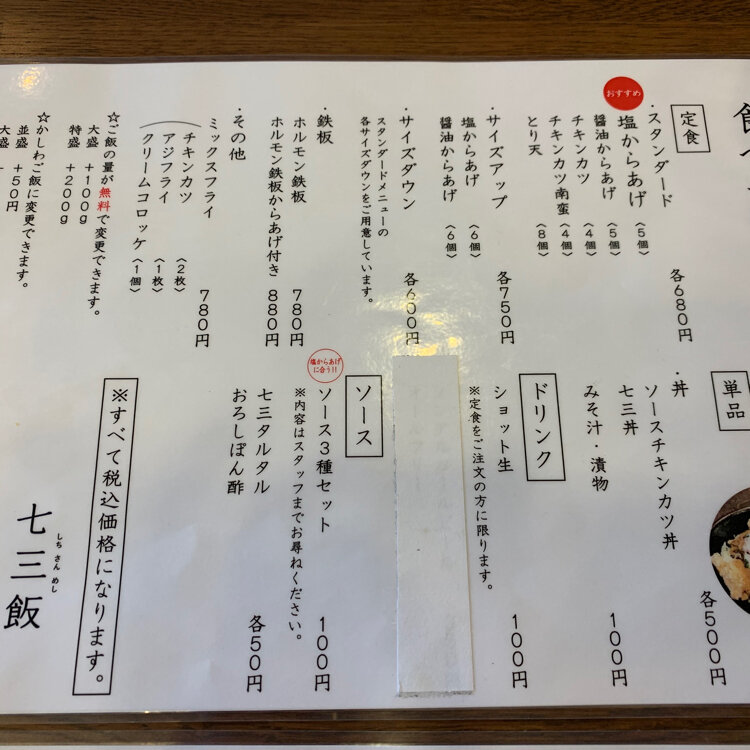 定食
・スタンダード
おすすめ
塩からあげ 〈5個〉
醤油からあげ 〈5個〉
チキンカツ 〈4個〉
チキンカツ南蛮 〈4個〉
とり天 〈8個〉
各680円
・サイズアップ
塩からあげ 〈6個〉
醤油からあげ 〈6個〉
各750円
・サイズダウン
スタンダードメニューの
各サイズダウンをご用意しています。
各600円
・鉄板
ホルモン鉄板 780円
ホルモン鉄板からあげ付き 880円
・その他
ミックスフライ 780円
チキンカツ 〈2枚〉
アジフライ 〈1枚〉
クリームコロッケ 〈1個〉
☆ご飯の量が無料で変更できます。
大盛 +100g
特盛 +200g
☆かしわご飯に変更できます。
並盛 +50円
大盛 +
単品
・丼
ソースチキンカツ丼
七三丼
各500円
みそ汁・漬物 100円
ドリンク
ショット生 100円
※定食をご注文の方に限ります。
ソース
塩からあげ
に合う!!
ソース3種セット 100円
※内容はスタッフまでお尋ねください。
七三タルタル
おろしぽん酢
各50円
※すべて税込価格になります。
しち さん めし
七三飯